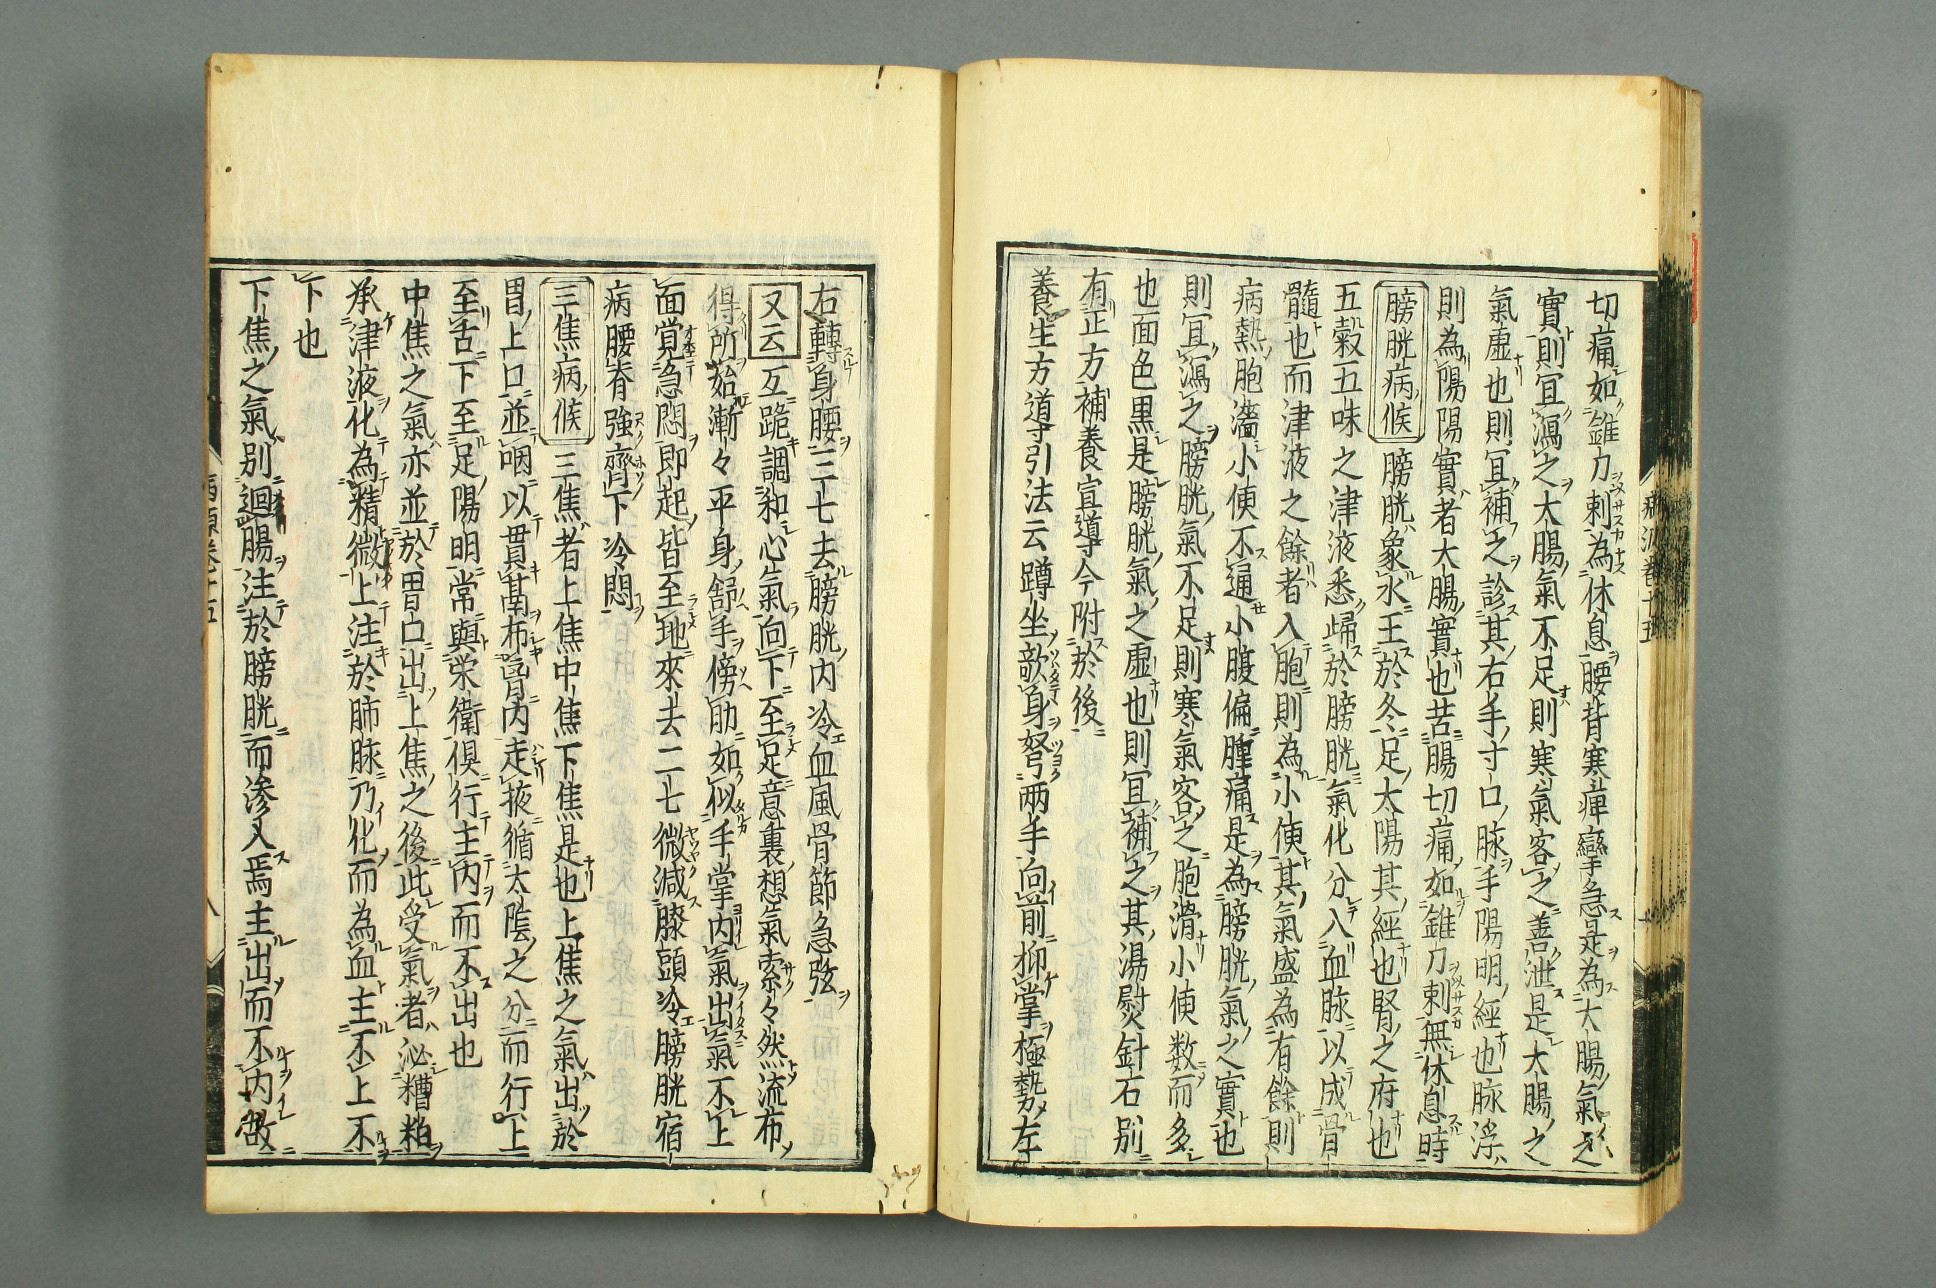 切痛如錐刀刺為休息腰背寒痺攣急是為大腸氣之
實則冝瀉之大腸氣不足則寒氣客之善泄是大腸之
氣虛也則冝補之診其右手寸口脉手陽明經也脉浮
則為陽陽實者大腸實也苦腸切痛如錐刀刺無休息時
膀胱病候 膀胱象水王於冬足太陽其經也腎之府也
五穀五味之津液悉歸於膀胱氣化分入血脉以成骨
髓也而津液之餘者入胞則為小便其氣盛為有餘則
病熱胞濇小便不通小腹偏腫痛是為膀胱氣之實也
則冝瀉之膀胱氣不足則寒氣客之胞滑小便数而多
也面色黒是膀胱氣之虛也則冝補之其湯熨針石別
有正方補養宣導今附於後
養生方道引法云蹲坐欹身弩兩手向前抑掌極勢左
右轉身腰三七去膀胱内冷血風骨節急強
又云 互跪調和心氣向下至足意裏想氣索々然流布
得所始漸々平身舒手傍肋如似手掌内氣出氣不上
面覚急悶即起皆至地來去二七微減膝頭冷膀胱宿
病腰脊強齊下冷悶
三焦病候 三焦者上焦中焦下焦是也上焦之氣出於
胃上口並咽以貫膈布胷内走掖循太陰之分而行上
至舌下至足陽明常與栄衛俱行主内而不出也
中焦之氣亦並於胃口出上焦之後此受氣者泌糟粕
承津液化為精微上注於肺脉乃化而為血主不上不
下也
下焦之氣別迴腸注於膀胱而滲入焉主出而不内故
病源卷十五